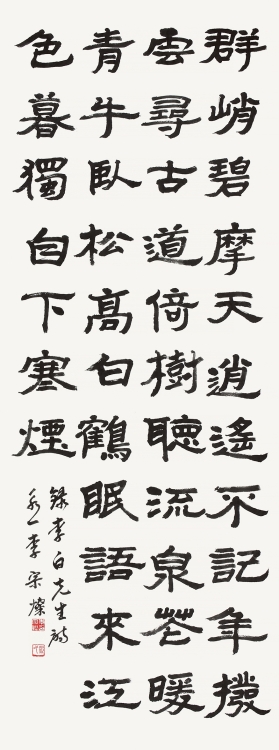 群峭碧摩天逍遙不記年撥
雲尋古道倚樹聽流泉花暖
青牛臥松高白鶴眠語來江
色暮獨自下寒煙
錄李白先生詩
一李宗燦